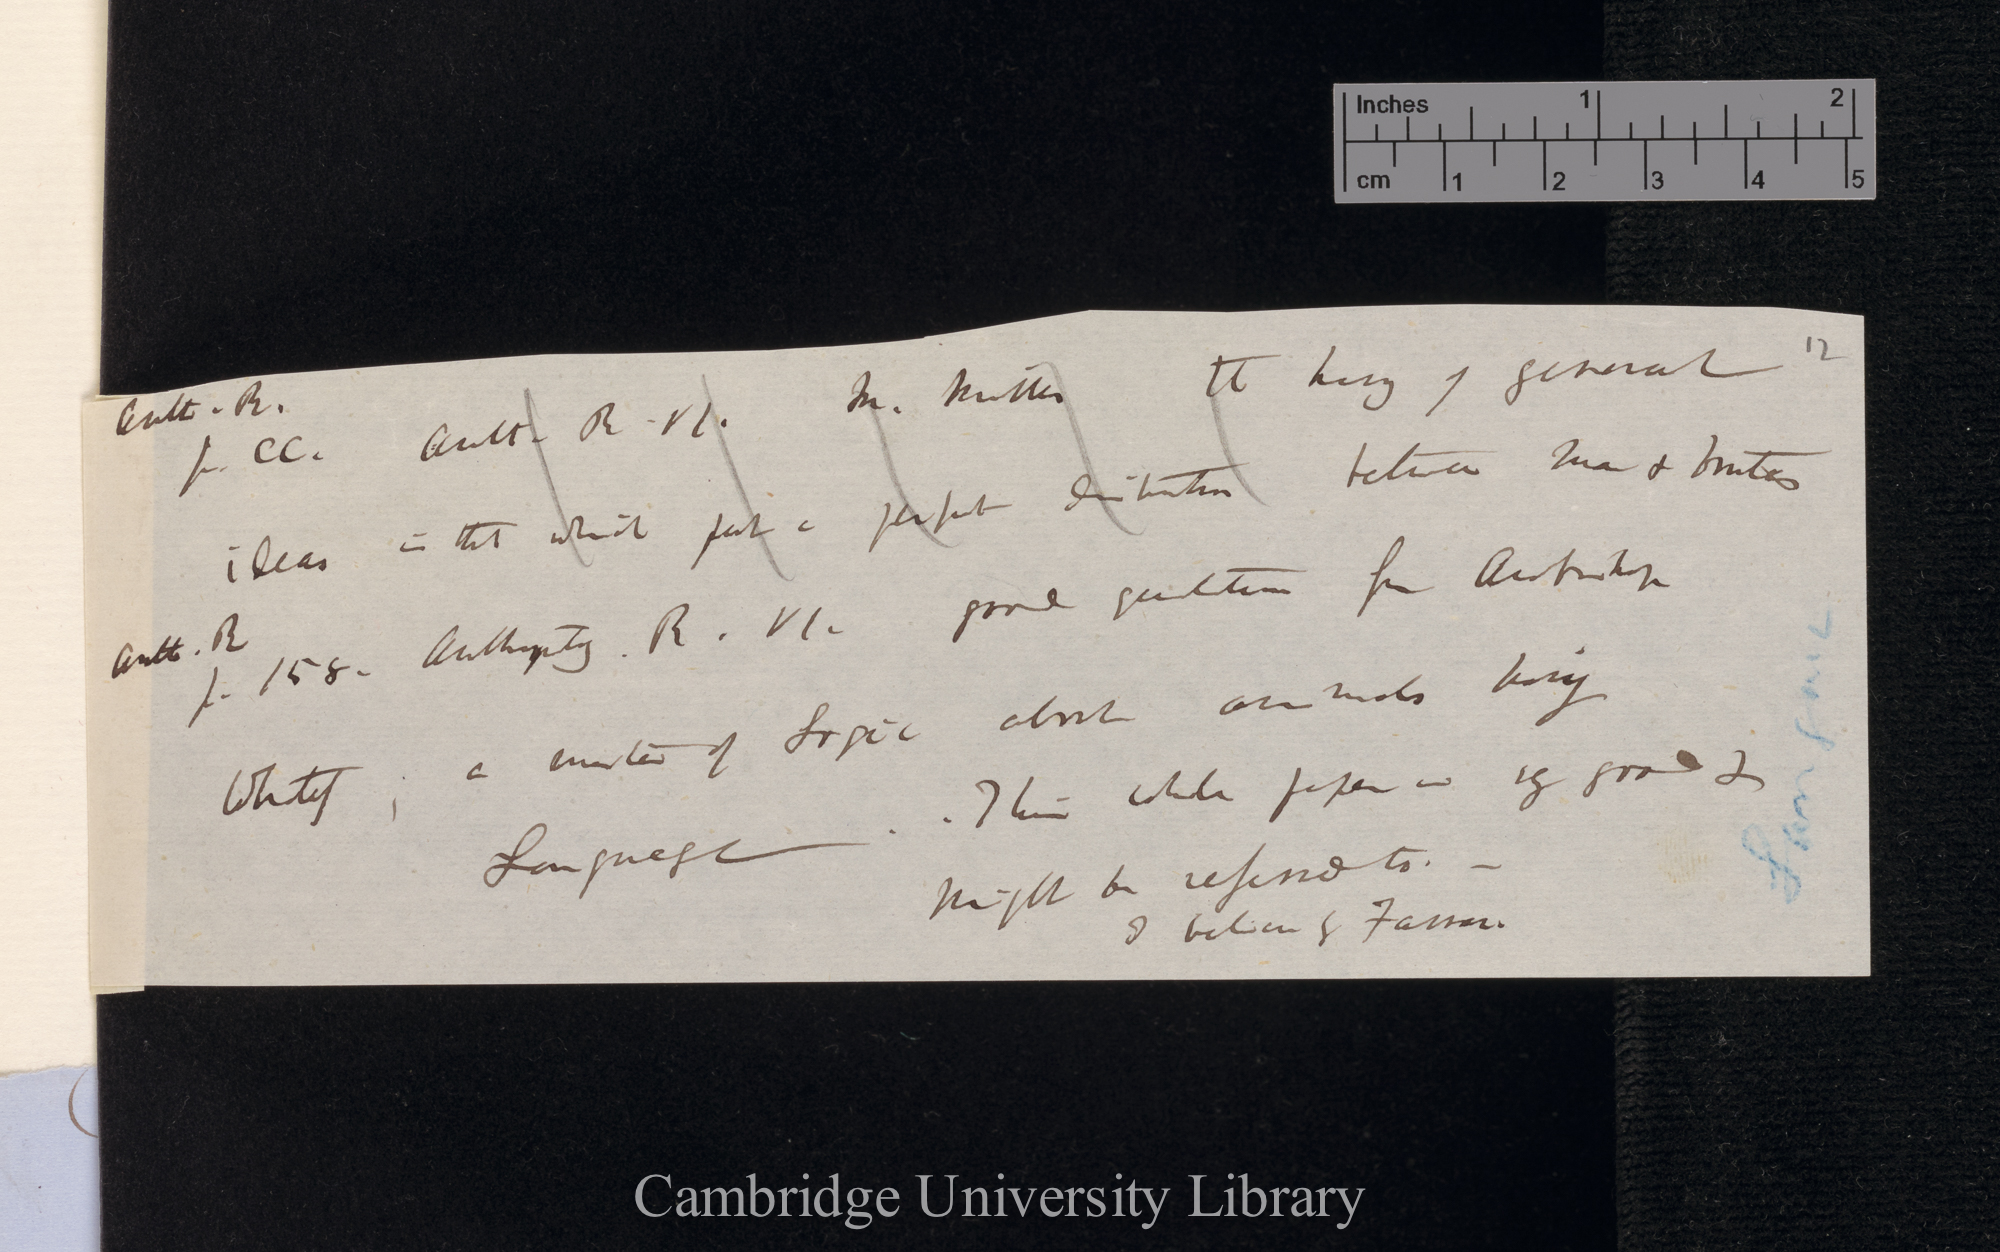 12
Anth. R.
p. CC. Anth. R. VI. M. Muller the having of general
ideas is that which puts a perfect distinction between man & brutes
Anth. R
p. 158. Anthrop. R. VI. good quotation from Archbishop
Whately, a master of Logic about animals having
Language. This whole paper is vy good &
might be referred to. —
I believe by Farrar.
Language
Inches 1 2
cm 1 2 3 4 5
Cambridge University Library